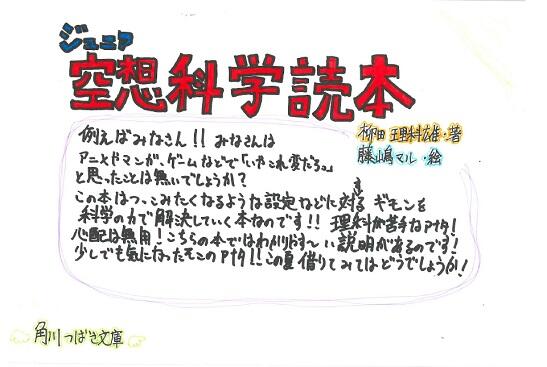 ジュニア
空想科学読本
柳田理科雄・著
藤嶋マル・絵
例えばみなさん!! みなさんは
アニメやマンガ、ゲームなどで「いやこれ変だろ。」
と思ったことは無いでしょうか?
この本はつっこみたくなるような設定などに対するギモンを
科学の力で解決していく本なのです!! 理科が苦手なアナタ!
心配は無用!こちらの本ではわかりやす〜い説明があるのです!
少しでも気になったそこのアナタ!!この夏借りてみてはどうでしょうか!
角川つばさ文庫